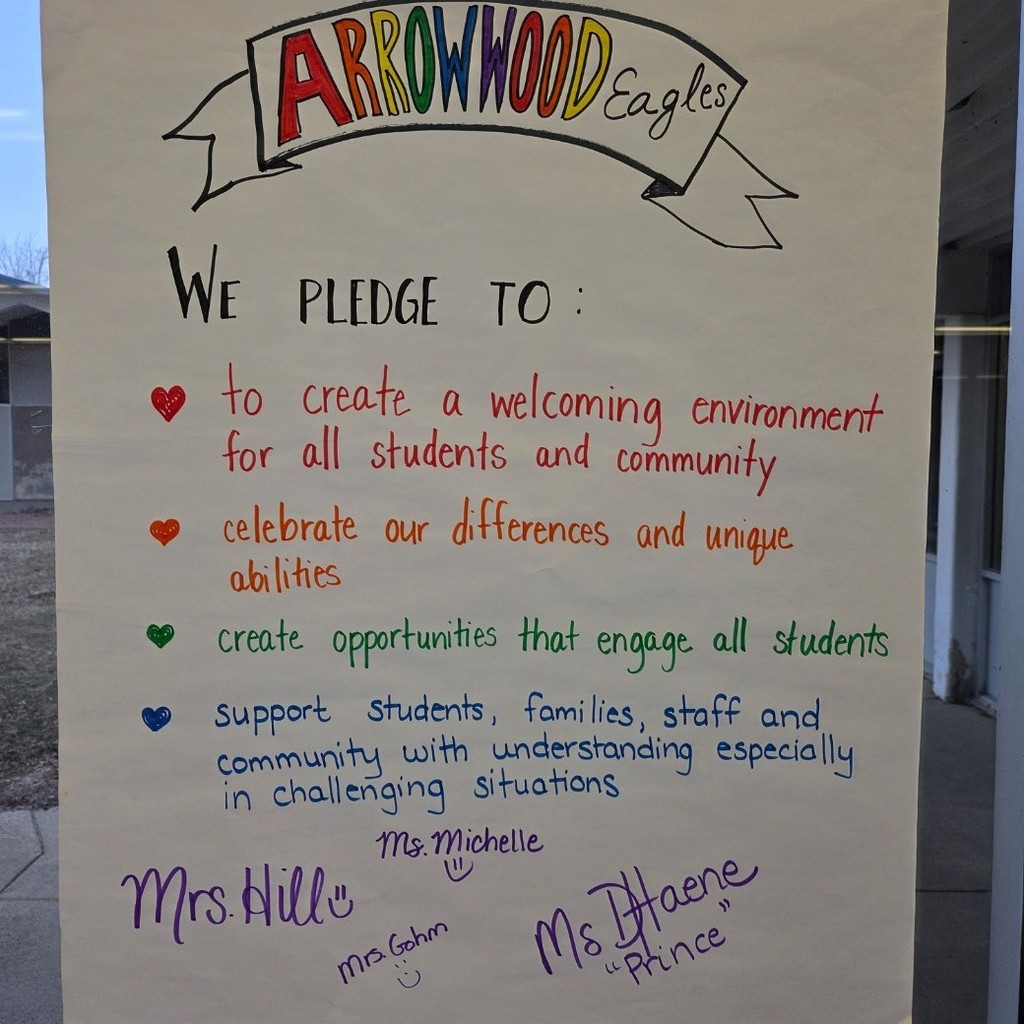 ARROWWOOD Eagles
WE PLEDGE TO:
to create a welcoming environment
for all students and community
celebrate our differences and unique
abilities
create opportunities that engage all students
support students, families, staff and
community with understanding especially
in challenging situations
Ms. Michelle
Mrs. Hill
Mrs. Gohm
Ms DHaene
"Prince"